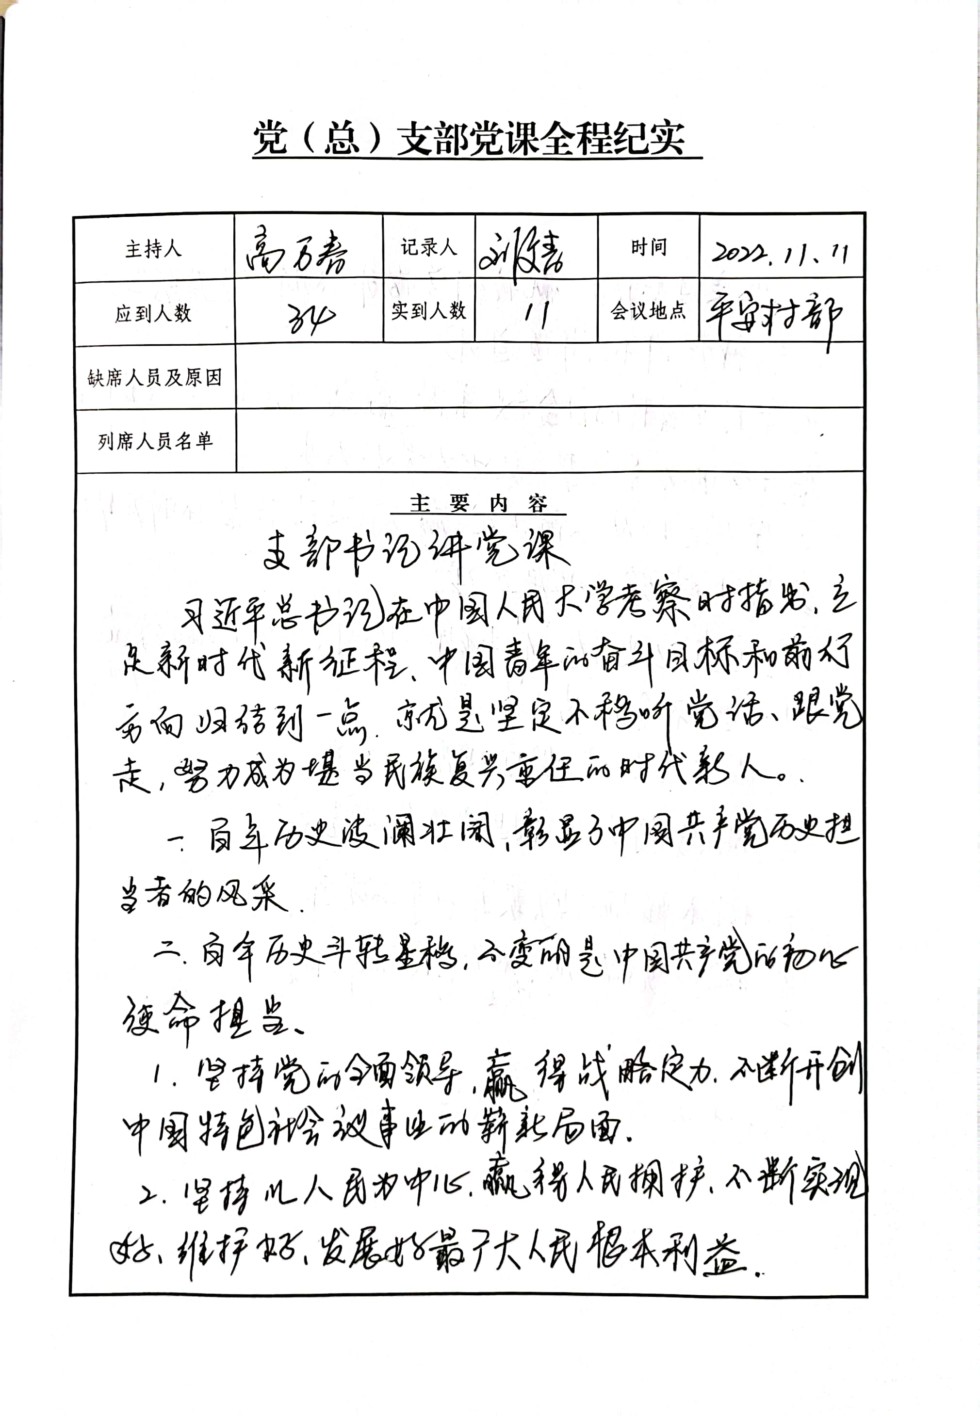 党（总）支部党课全程纪实
主持人 高万春 记录人 时间 2022.11.11
应到人数 34 实到人数 11 会议地点 平安村部
缺席人员及原因
列席人员名单
主要内容
支部书记讲党课
习近平总书记在中国人民大学考察时指出,立
足新时代新征程、中国青年的奋斗目标和前行
方向归结到一点,就是坚定不移听党话、跟党
走,努力成为堪当民族复兴重任的时代新人。
一.百年历史波澜壮阔,彰显了中国共产党历史担
当者的风采.
二.百年历史斗转星移,不变的是中国共产党的初心
使命担当、
1.坚持党的全面领导,赢得战略定力.不断开创
中国特色社会议事业的新局面.
2.坚持以人民为中心.赢得人民拥护、不断实现
好、维护好、发展好最广大人民根本利益.